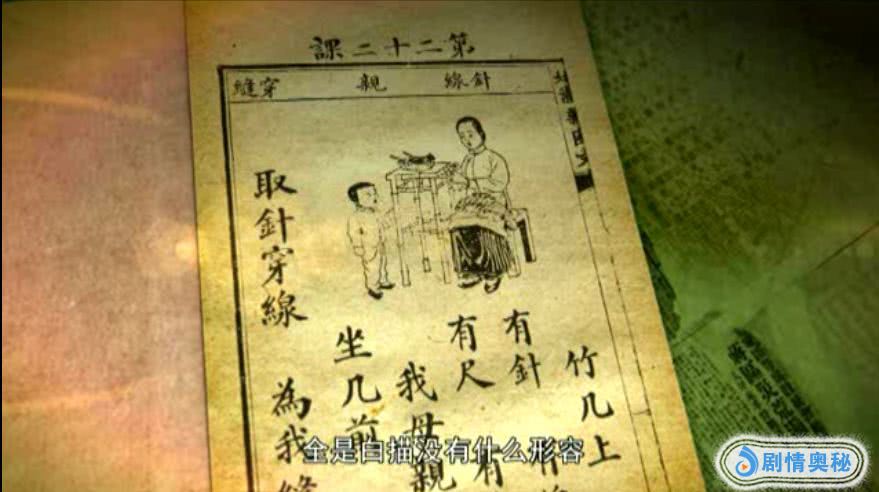 第二十二課
針線 親 穿縫
竹几上
有針
有尺 有
我母親
坐几前
取針穿線 為我縫
全是白描没有什么形容
剧情奥秘